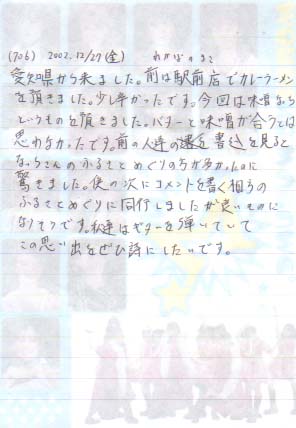 (706) 2002.12/27(金) わかばのまこ
愛知県から来ました。前は駅前店でカレーラーメン
を頂きました。少し辛かったです。今回は味噌なら
というものを頂きました。バターと味噌が合うとは
思わなかったです。前の人達の書込を見ると
ならさんのふるさとめぐりの方が多かったのに
驚きました。僕の次にコメントを書く相方の
ふるさとめぐりに同行しましたが良いものに
なりそうです。私達はギターを弾いていて
この思い出をぜひ詩にしたいです。